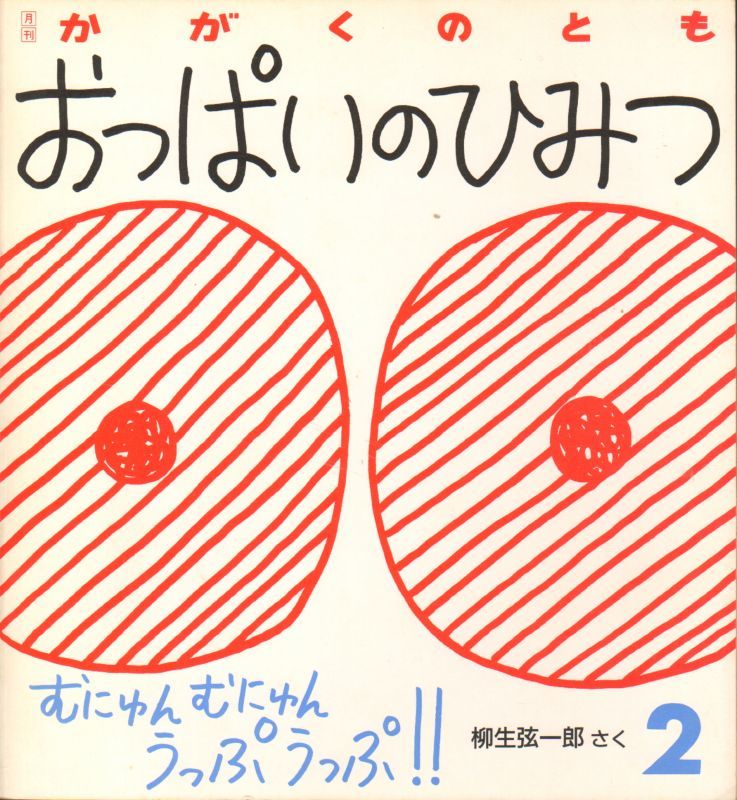 月刊 かがくのとも
おっぱいのひみつ
むにゅんむにゅん
うっぷうっぷ!!
柳生弦一郎 さく 2